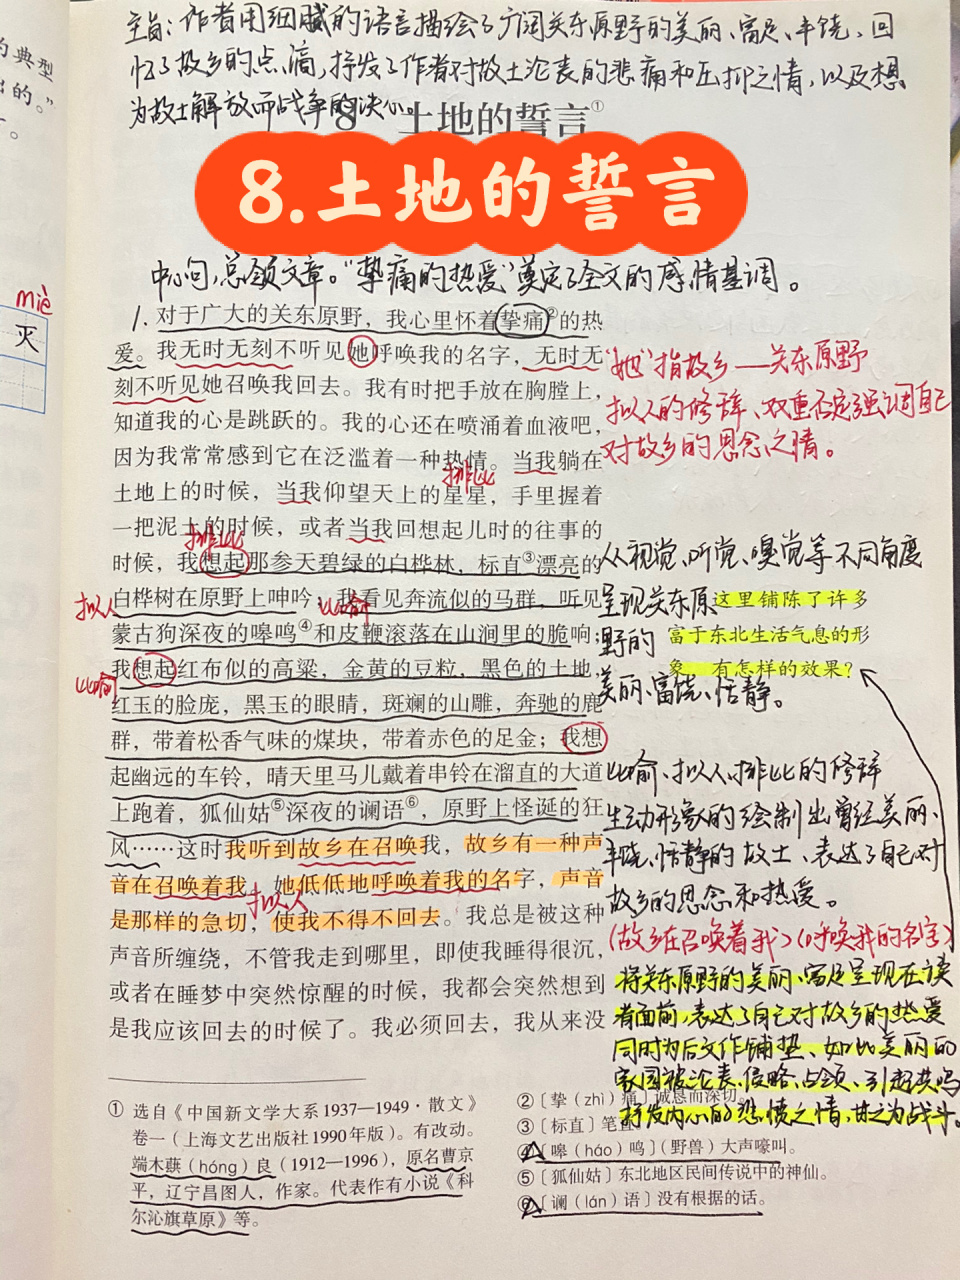 主旨：作者用细腻的语言描绘了广阔关东原野的美丽、富足、丰饶、回
忆了故乡的点滴，抒发了作者对故土沦丧的悲痛和压抑之情，以及想
为故土解放而战争的决心。
的典型
出的。”
8 土地的誓言①
8.土地的誓言
中心句，总领文章。“挚痛的热爱”奠定了全文的感情基调。
miè
灭
1.对于广大的关东原野，我心里怀着挚痛②的热
爱。我无时无刻不听见她呼唤我的名字，无时无
刻不听见她召唤我回去。我有时把手放在胸膛上，
知道我的心是跳跃的。我的心还在喷涌着血液吧，
因为我常常感到它在泛滥着一种热情。当我躺在
排比
土地上的时候，当我仰望天上的星星，手里握着
一把泥土的时候，或者当我回想起儿时的往事的
排比
时候，我想起那参天碧绿的白桦林，标直③漂亮的
拟人
白桦树在原野上呻吟；我看见奔流似的马群，听见
比喻
蒙古狗深夜的嗥鸣④和皮鞭滚落在山涧里的脆响；
我想起红布似的高粱，金黄的豆粒，黑色的土地，
比喻
红玉的脸庞，黑玉的眼睛，斑斓的山雕，奔驰的鹿
群，带着松香气味的煤块，带着赤色的足金；我想
起幽远的车铃，晴天里马儿戴着串铃在溜直的大道
上跑着，狐仙姑⑤深夜的谰语⑥，原野上怪诞的狂
风……这时我听到故乡在召唤我，故乡有一种声
音在召唤着我。她低低地呼唤着我的名字，声音
拟人
是那样的急切，使我不得不回去。我总是被这种
声音所缠绕，不管我走到哪里，即使我睡得很沉，
或者在睡梦中突然惊醒的时候，我都会突然想到
是我应该回去的时候了。我必须回去，我从来没
“她”指故乡——关东原野
拟人的修辞、双重否定强调自己
对故乡的思念之情。
从视觉、听觉、嗅觉等不同角度
呈现关东原
野的
美丽、富饶、恬静。
这里铺陈了许多
富于东北生活气息的形
象，有怎样的效果？
比喻、拟人、排比的修辞
生动形象的绘制出曾经美丽、
丰饶、恬静的故土、表达了自己对
故乡的思念和热爱。
(故乡在召唤着我)(呼唤我的名字)
将关东原野的美丽、富足呈现在读
者面前，表达了自己对故乡的热爱
同时为后文作铺垫、如此美丽的
家园被沦丧、侵略、占领、引起共鸣
抒发内心的悲愤之情，甘之为战斗。
① 选自《中国新文学大系1937—1949·散文》
卷一（上海文艺出版社1990年版）。有改动。
端木蕻（hóng）良（1912—1996），原名曹京
平，辽宁昌图人，作家。代表作有小说《科
尔沁旗草原》等。
②〔挚（zhì）痛〕诚恳而深切。
③〔标直〕笔直。
④〔嗥（háo）鸣〕（野兽）大声嚎叫。
⑤〔狐仙姑〕东北地区民间传说中的神仙。
⑥〔谰（lán）语〕没有根据的话。